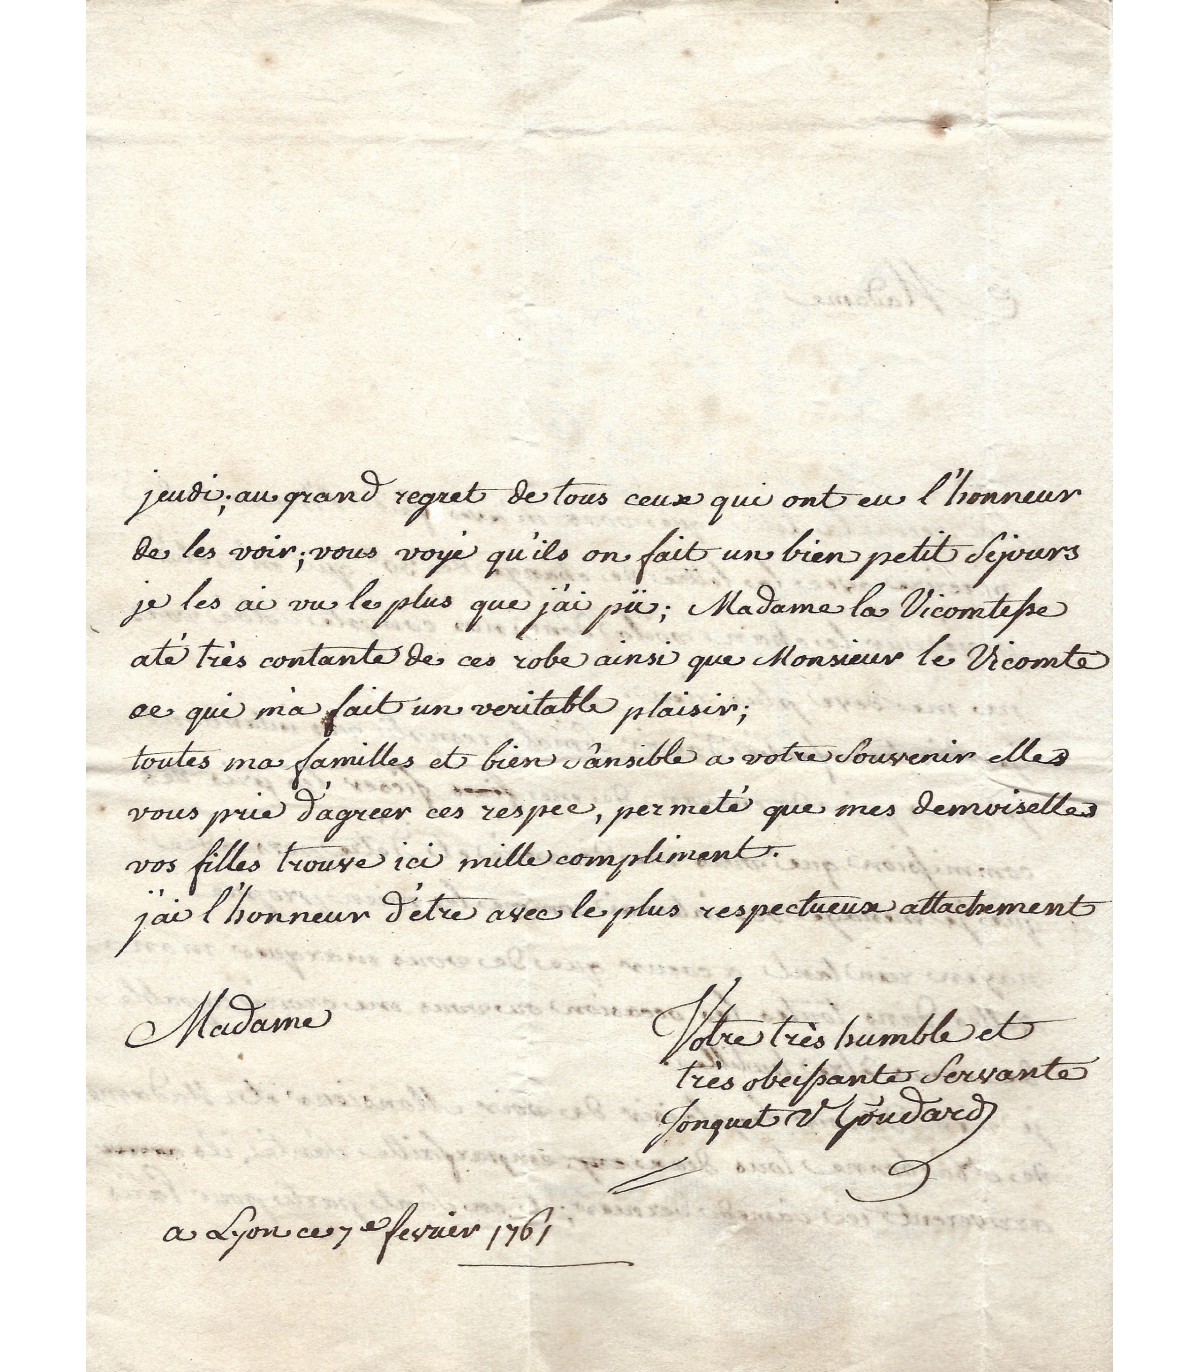 jeudi; au grand regret de tous ceux qui ont eu l'honneur
de les voir; vous voyé qu'ils on fait un bien petit Séjours
je les ai vu le plus que j'ai pü; Madame la Vicomtesse
até très contante de ces robe ainsi que Monsieur le Vicomte
ce qui m'a fait un veritable plaisir;
toutes ma familles et bien sânsible a votre Souvenir elles
vous prie d'agreer ces respec, permeté que mes demoiselles
vos filles trouve ici mille compliment.
j'ai l'honneur d'être avec le plus respectueux attachement
Madame
Votre très humble et
très obeissante Servante
Jonquet Ve Goudard
a Lyon ce 7e fevrier 1761